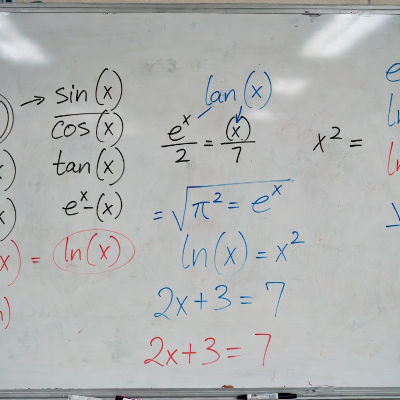 → sin(x)
cos(x)
tan(x)
e^x-(x)
x) = ln(x)
lan(x)
e^x/2 = (x)/7
= √π² = e^x
ln(x) = x²
2x+3 = 7
2x+3 = 7
x² =